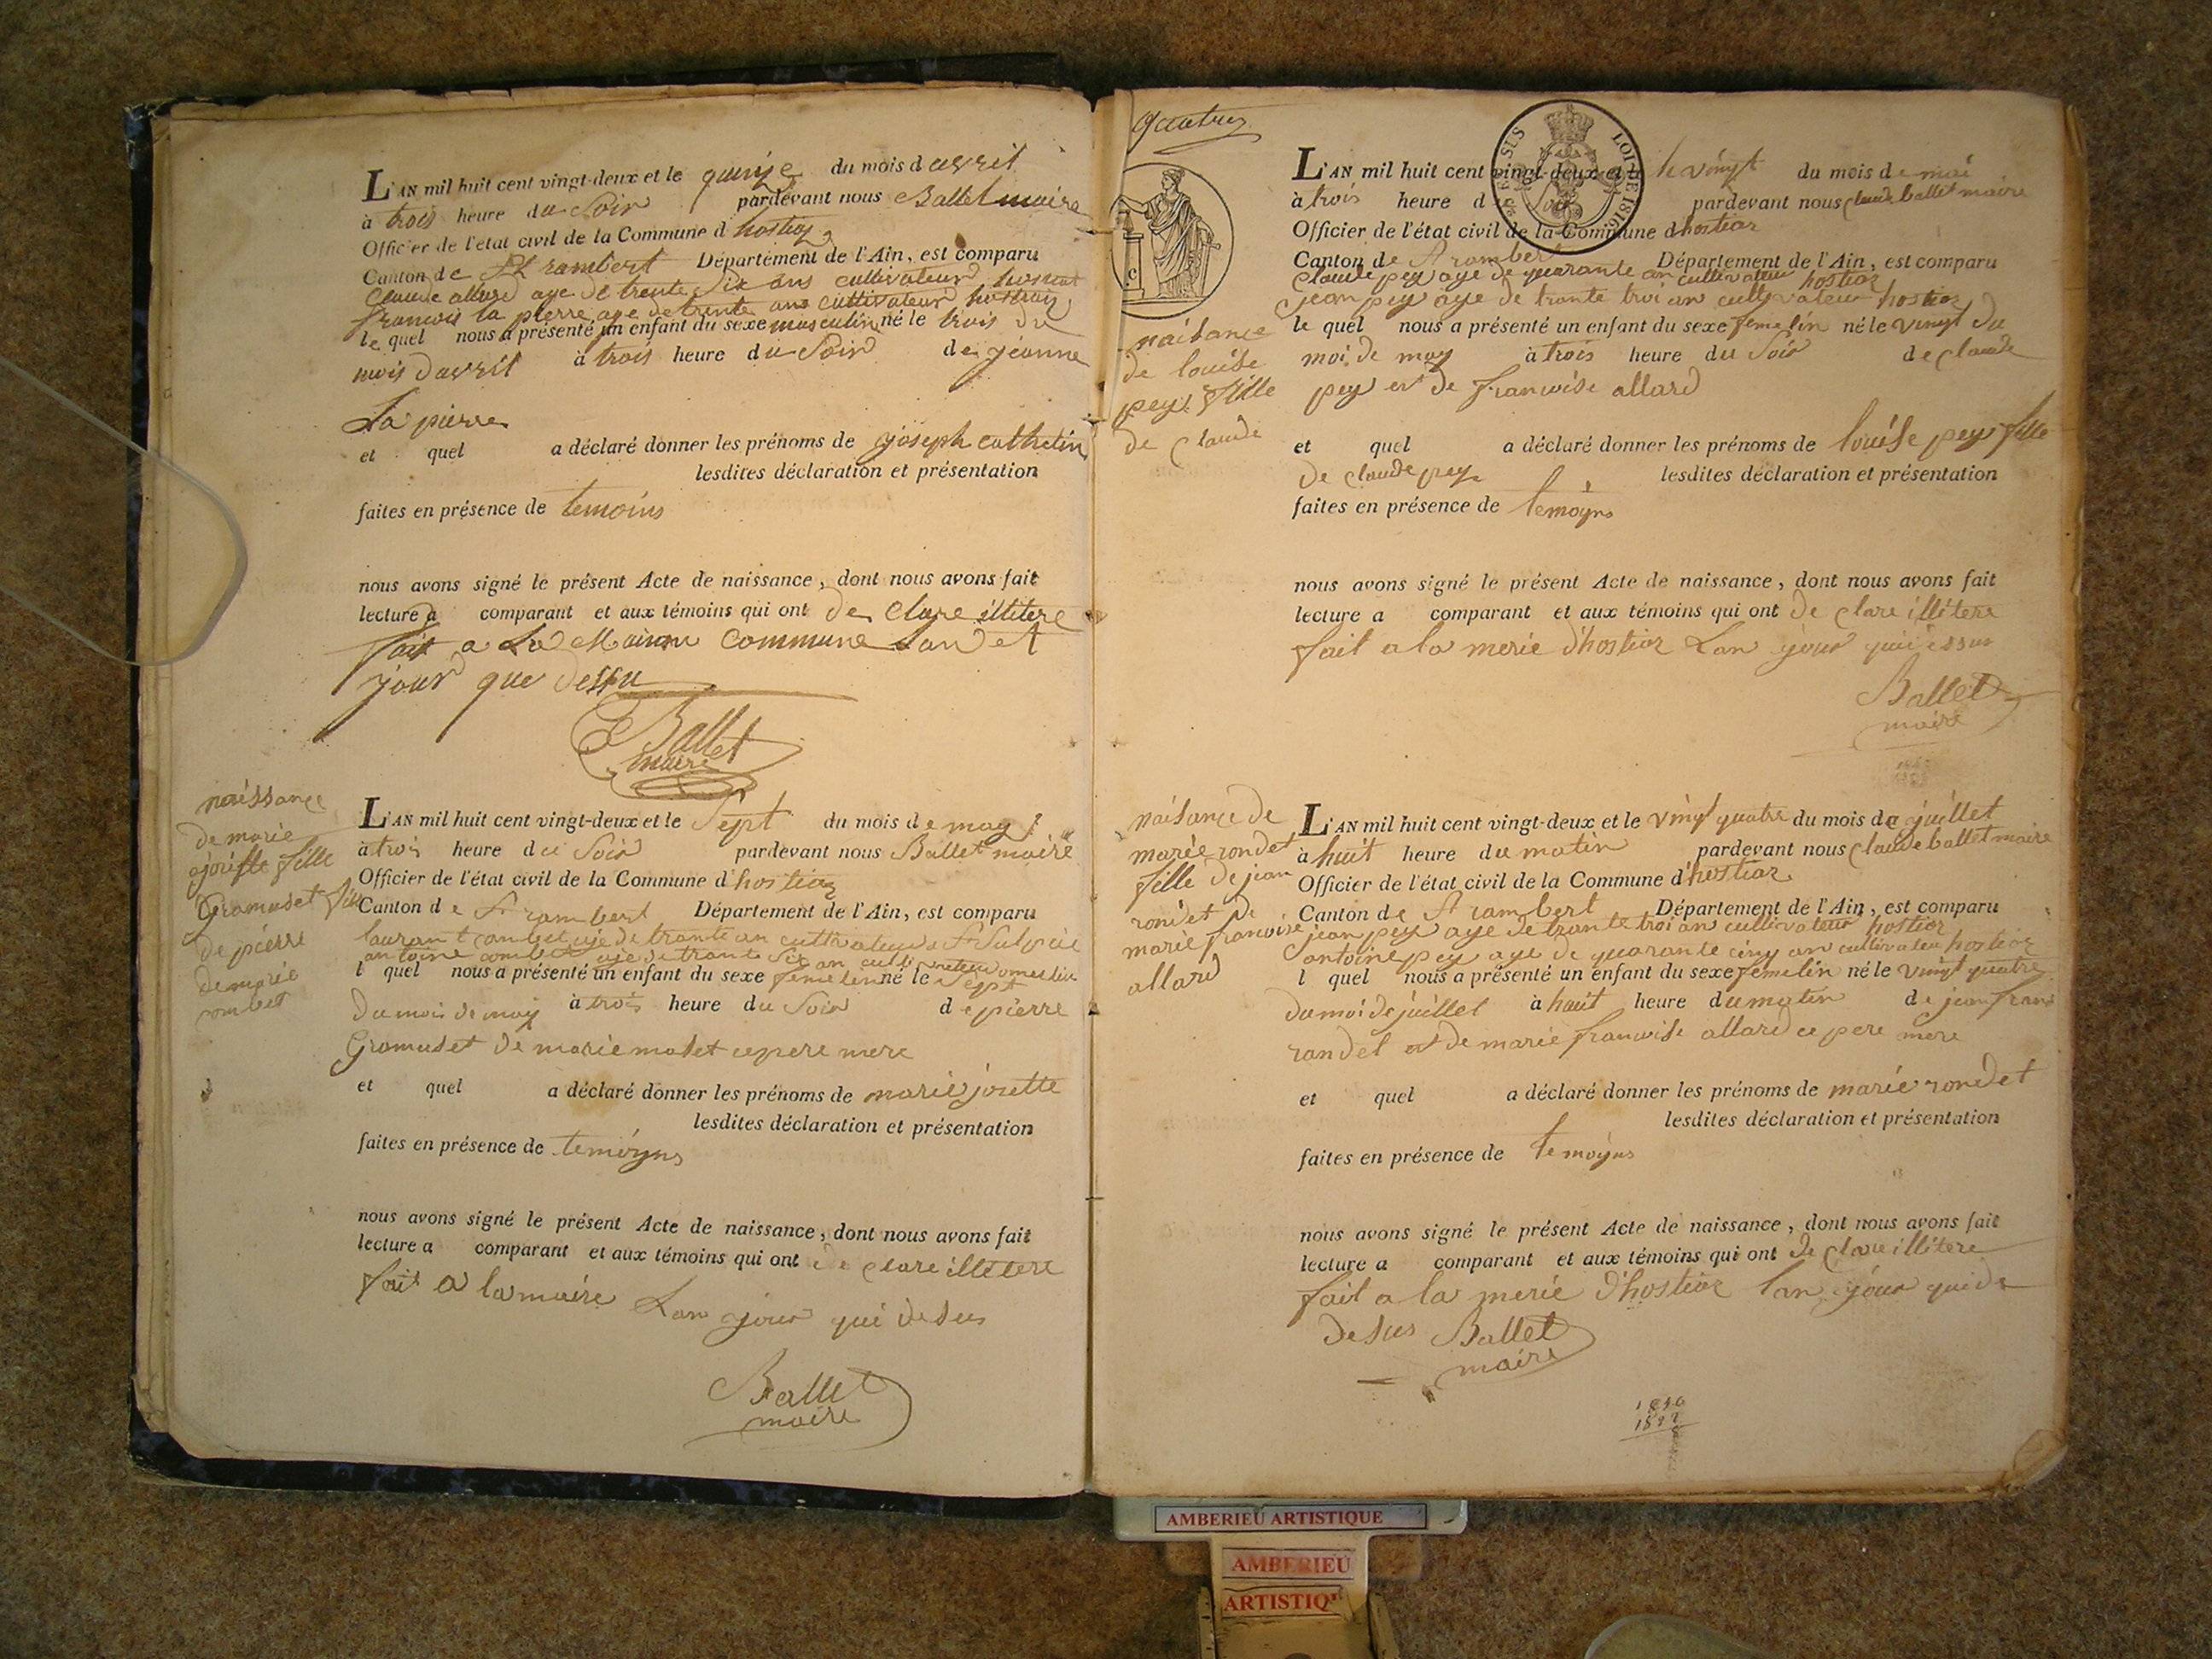 L'AN mil huit cent vingt-deux et le quinze du mois d avril
à trois heure du Soir pardevant nous Ballet maire
Officier de l'état civil de la Commune d hostiaz
Canton de St rambert Département de l'Ain, est comparu
Claude allard age de trente six ans cultivateur
francois la pierre age de trente ans cultivateur
le quel nous a présenté un enfant du sexe masculin né le trois du
mois davril à trois heure du Soir de jeanne
La pierre
et quel a déclaré donner les prénoms de joseph cathelin
lesdites déclaration et présentation
faites en présence de temoins
nous avons signé le présent Acte de naissance, dont nous avons fait
lecture a comparant et aux témoins qui ont de clare illitere
fait a La Maison commune Lan et
jour que dessu
Ballet
maire
naissance
de marie
josifte fille
Gramuset fille
de pierre
de marie
L'AN mil huit cent vingt-deux et le Sept du mois de may
à trois heure du Soir pardevant nous Ballet maire
Officier de l'état civil de la Commune d'hostiaz
Canton de St rambert Département de l'Ain, est comparu
laurant combet aje de trante an cultivateur a St Sulpice
antoine combet aje de trante six an
l quel nous a présenté un enfant du sexe femelin né le Sept
du mois de may à trois heure du Soir de pierre
Gramuset de marie moset ce pere mere
et quel a déclaré donner les prénoms de marie josette
lesdites déclaration et présentation
faites en présence de temoyns
nous avons signé le présent Acte de naissance, dont nous avons fait
lecture a comparant et aux témoins qui ont de clare illitere
fait a la maire Lan jour qui desus
Ballet
maire
quatre
SUS LOI DE 1816
naisance
de louise
pey fille
de Claude
L'AN mil huit cent vingt-deux et le vingt du mois de mai
à trois heure d Soir pardevant nous Claude ballet maire
Officier de l'état civil de la Commune dhostiaz
Canton de St rambert Département de l'Ain, est comparu
Claude pey aye de quarante an cultivateur hostiaz
jean pey aye de trante troi an cultivateur hostiaz
le quel nous a présenté un enfant du sexe femelin né le vingt du
moi de may à trois heure du Soir de claude
pey et de francoise allard
et quel a déclaré donner les prénoms de louise pey fille
de claude pey lesdites déclaration et présentation
faites en présence de temoyns
nous avons signé le présent Acte de naissance, dont nous avons fait
lecture a comparant et aux témoins qui ont de clare illitere
fait a la merie d'hostiaz Lan jour
Ballet
maire
naisance de
marie rondet
fille de jean
rondet de
marie francoise
allard
L'AN mil huit cent vingt-deux et le vingt quatre du mois de juillet
à huit heure du matin pardevant nous Claude ballet maire
Officier de l'état civil de la Commune d'hostiaz
Canton de St rambert Département de l'Ain, est comparu
jean pey aye de trante troi an cultivateur hostiaz
antoine pey aye de quarante cinq an cultivateu hostiaz
l quel nous a présenté un enfant du sexe femelin né le vingt quatre
du moi de juillet à huit heure du matin de jean frans
randet et de marie francoise allard ce pere mere
et quel a déclaré donner les prénoms de marie rondet
lesdites déclaration et présentation
faites en présence de temoyns
nous avons signé le présent Acte de naissance, dont nous avons fait
lecture a comparant et aux témoins qui ont de clare illitere
fait a la merie d'hostiaz lan jour qui de
desus Ballet
maire
AMBERIEU ARTISTIQUE
AMBERIEU
ARTISTIQ